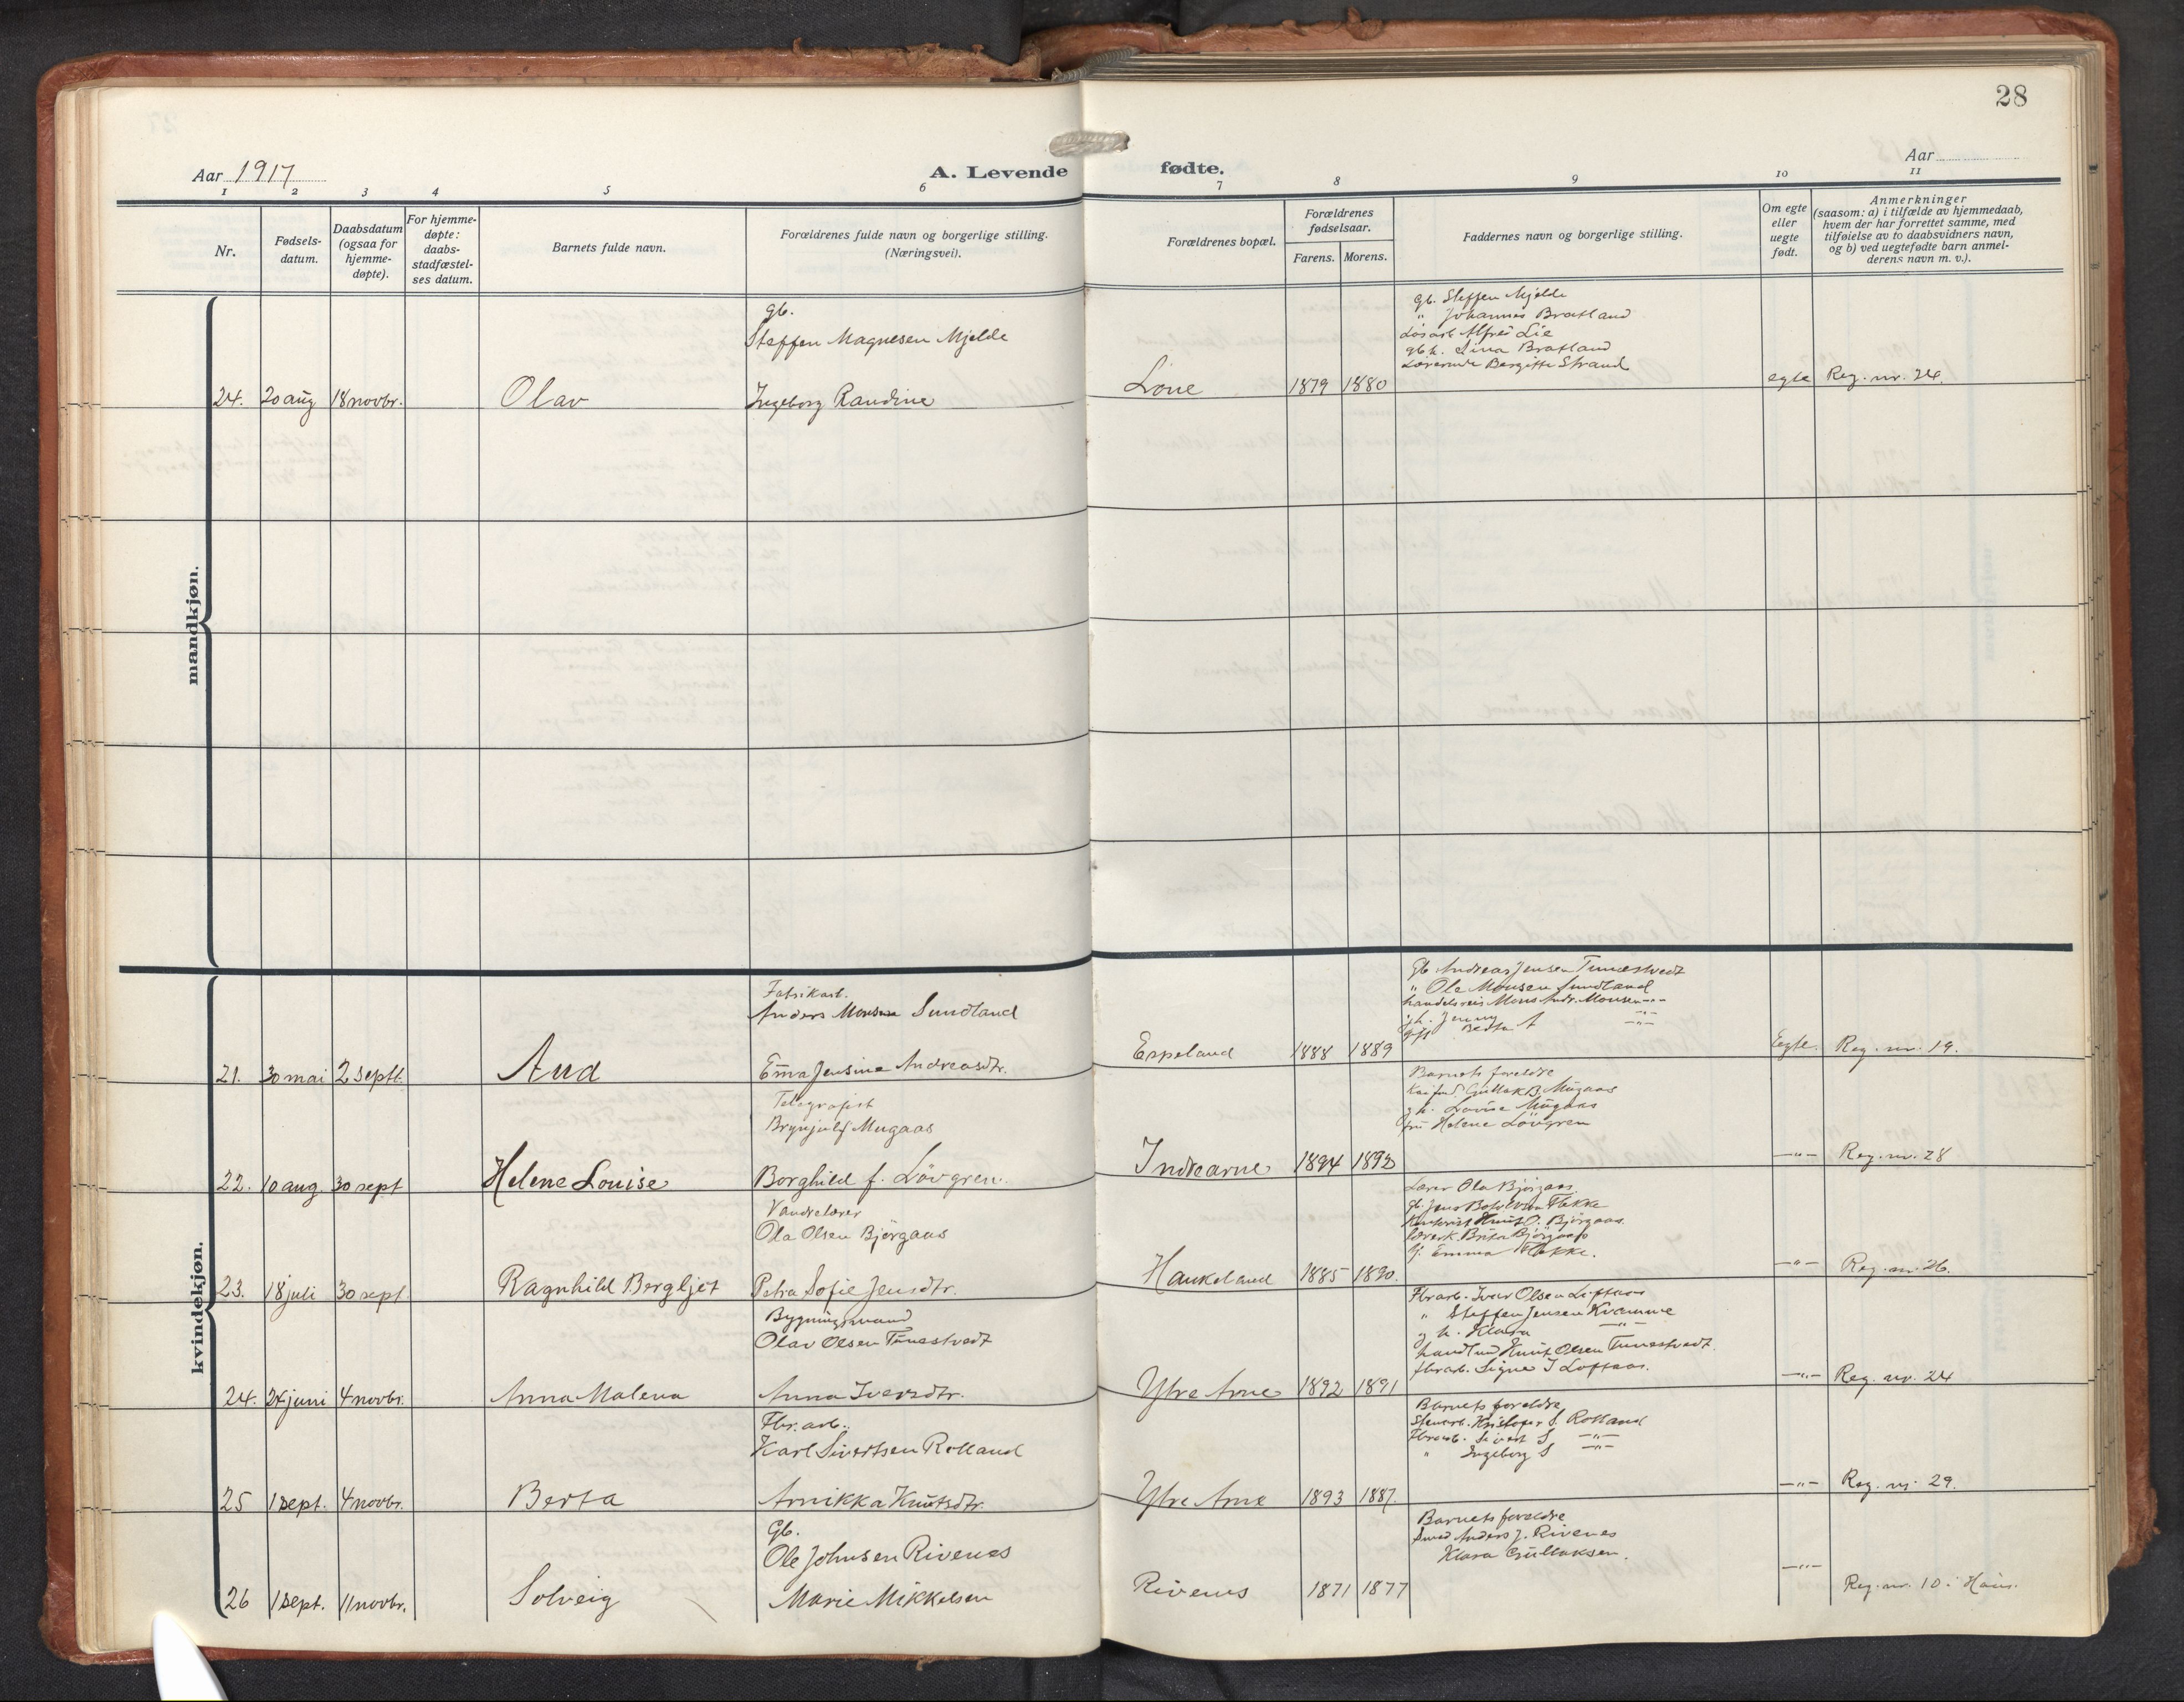 28
Aar 1917
A. Levende fødte.
Aar
1 2 3 4 5 6 7 8 9 10 11
Nr.
Fødsels-
datum.
Daabsdatum
(ogsaa for
hjemme-
døpte).
For hjemme-
døpte:
daabs-
stadfæstel-
ses datum.
Barnets fulde navn.
Forældrenes fulde navn og borgerlige stilling.
(Næringsvei).
Forældrenes bopæl.
Forældrenes
fødselsaar.
Farens. Morens.
Faddernes navn og borgerlige stilling.
Om egte
eller
uegte
født.
Anmerkninger
(saasom: a) i tilfælde av hjemmedaab,
hvem der har forrettet samme, med
tilføielse av to daabsvidners navn,
og b) ved uegtefødte barn anmel-
derens navn m. v.).
mandkjøn.
gb.
Steffen Magnesen Mjelde
24. 20 aug 18 novbr. Olav Ingeborg Randine
Lone 1879 1880
gb. Steffen Mjelde
" Johannes Bratland
Løsarb Alfred Lie
gb h. Lina Bratland
Lærerinde Bergitte Strand
egte Reg. nr. 24.
kvindekjøn.
Fabrikarb.
Anders Monsen Sundland
21. 30 mai 2 sept. Aud Emma Jensine Andreasdtr.
Espeland 1888 1889
Gb Andreas Jensen Tunestvedt
" Ole Monsen Sundland
handelsreis Mons Andr. Monsen -"-
gh. Jenny -"-
Berta A -"-
Egte. Reg. nr. 19.
Telegrafist
Brynjulf Mugaas
22. 10 aug. 30 sept Helene Louise Borghild f. Lövgren.
Indrearne 1894 1892
Barnets foreldre
Gullak B. Mugaas
g h. Lovise Mugaas
fru Helene Lövgren
-"- Reg. nr. 28
Vandrelærer
Ola Olsen Björgaas
23. 18 juli 30 sept. Ragnhild Bergljot Petra Sofie Jensdtr.
Haukeland 1885 1890.
Lærer Ola Björgaas
gb. Jens Flakke
Knut O. Björgaas.
Brita Björgaas
Emma Flakke.
-"- Reg. nr. 26.
Bygningsmand
Olav Olsen Tunestvedt
24. 24 juni 4 novbr. Anna Malena Anna Iversdtr.
Ytre Arne 1892 1891
Fbrarb. Ivar Olsen Loftaas
" Steffen Jensen Kvamme
g h. Klara -"-
Knut Olsen Tunestvedt.
fbrarb. Signe I Loftaas.
-"- Reg. nr. 24
Fbr. arb.
Karl Sivertsen Rolland
25 1 sept. 4 novbr. Berta Annikka Knutsdtr.
Ytre Arne 1893 1887.
Barnets foreldre
Stenarb. Kristofer S. Rolland
Fbrarb. Sivert S -"-
" Ingeborg S -"-
-"- Reg. nr. 29.
Gb.
Ole Johnsen Rivenes
26 1 sept. 11 novbr. Solveig Marie Mikkelsen
Rivenes 1871 1877
Barnets foreldre
Smed Anders J. Rivenes
Klara Gullaksen.
-"- Reg. nr. 10 i Haus.